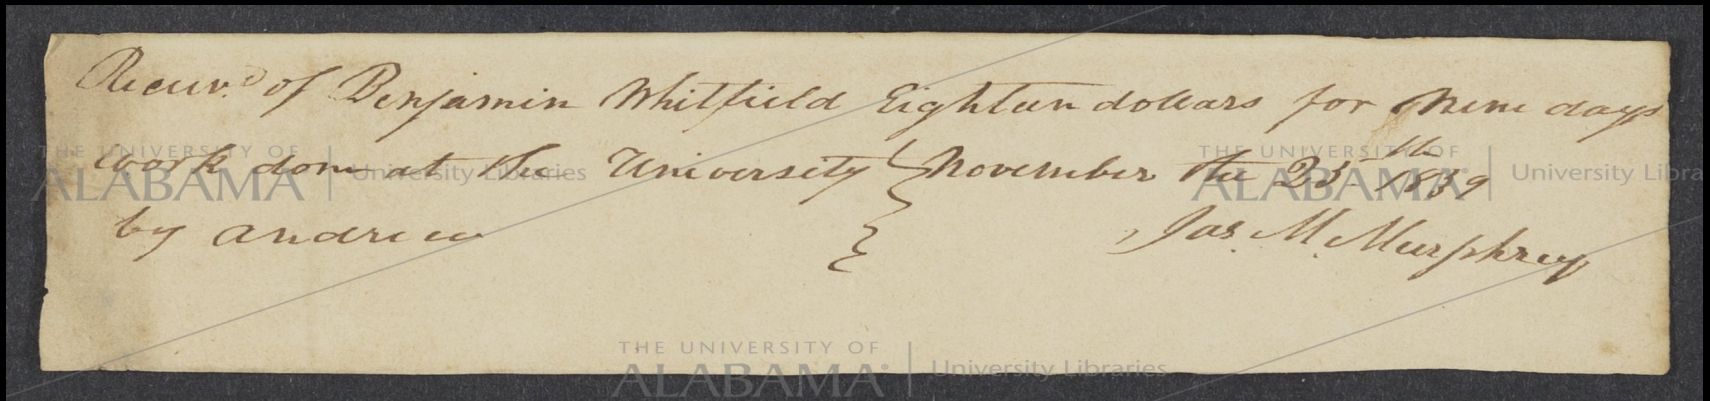 Receiv.d of Benjamin Whitfield Eighteen dollars for Nine days
work done at the University } November the 25th 1839
by andrew } Jas. M. Murphrey
THE UNIVERSITY OF ALABAMA University Libraries
THE UNIVERSITY OF ALABAMA University Libra
THE UNIVERSITY OF ALABAMA University Libraries